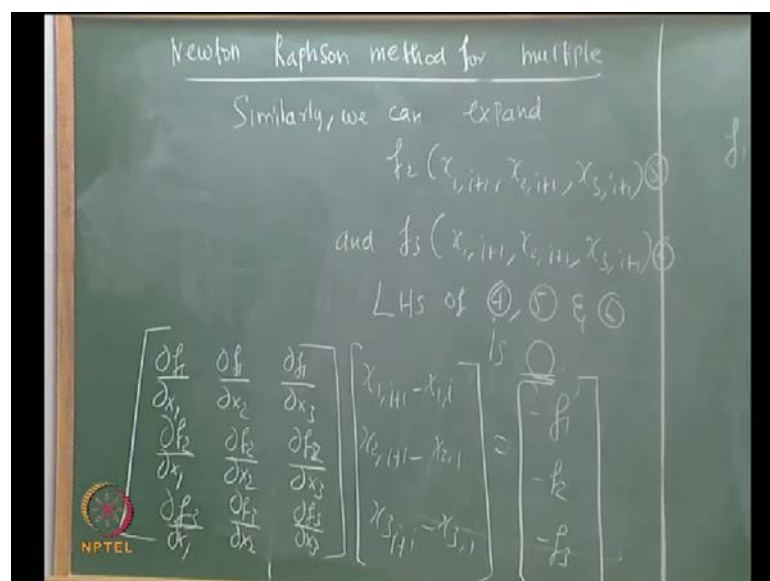 Newton Raphson method for multiple
Similarly, we can expand
f₂ (x₁,ᵢ₊₁, x₂,ᵢ₊₁, x₃,ᵢ₊₁) ⑤
f₁
and f₃ (x₁,ᵢ₊₁, x₂,ᵢ₊₁, x₃,ᵢ₊₁) ⑥
LHS of ④, ⑤ & ⑥
is 0
[∂f₁/∂x₁ ∂f₁/∂x₂ ∂f₁/∂x₃] [x₁,ᵢ₊₁ - x₁,ᵢ] = [-f₁]
[∂f₂/∂x₁ ∂f₂/∂x₂ ∂f₂/∂x₃] [x₂,ᵢ₊₁ - x₂,ᵢ] [-f₂]
[∂f₃/∂x₁ ∂f₃/∂x₂ ∂f₃/∂x₃] [x₃,ᵢ₊₁ - x₃,ᵢ] [-f₃]
NPTEL